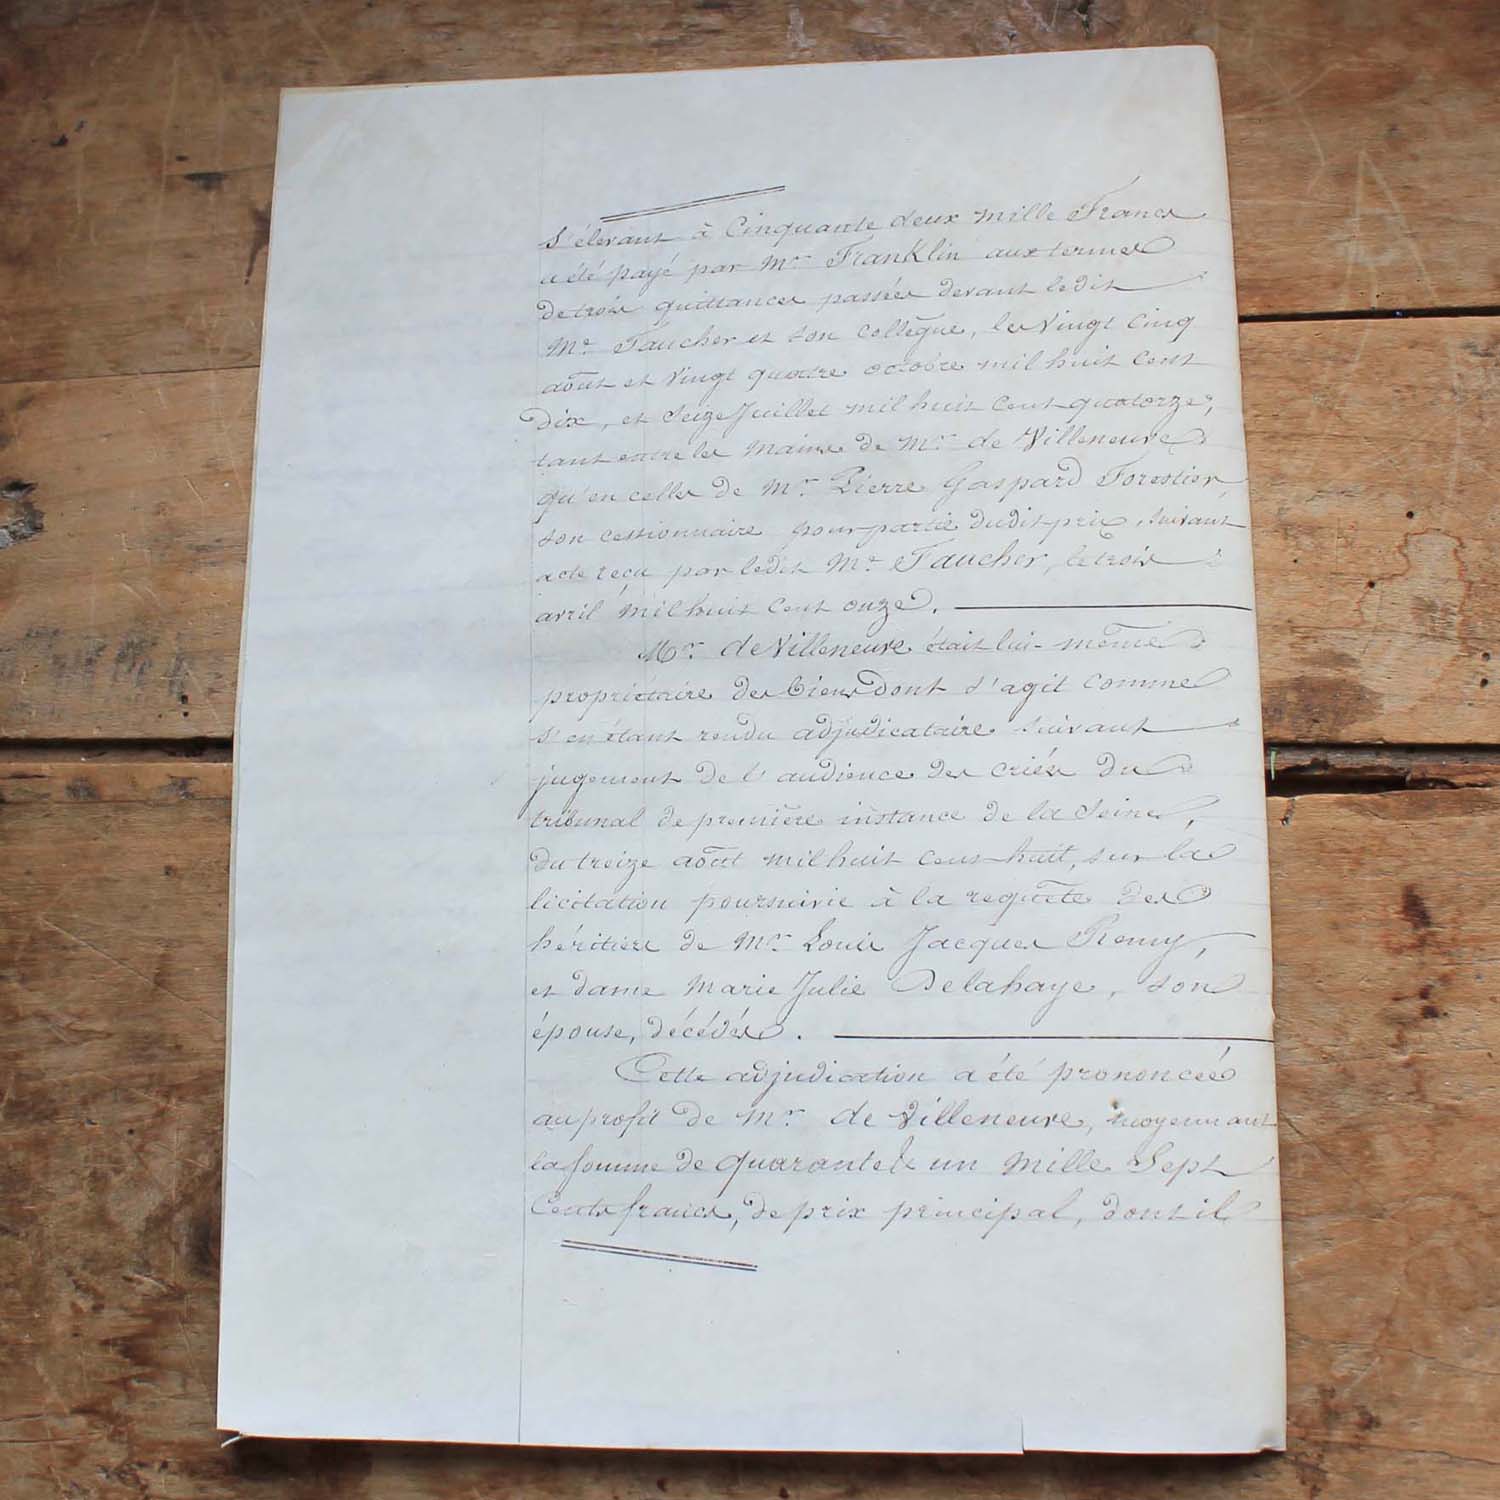 s'élevant à Cinquante deux mille Francs
a été payé par Mr. Franklin aux termes
de trois quittances passées devant le dit
Me. Faucher et son collègue, les Vingt cinq
août et Vingt quatre octobre mil huit cent
Dix, et Seize Juillet mil huit cent quatorze,
tant entre les Mains de Mr. de Villeneuve
qu'en celles de Mr. Pierre Gaspard Forestier,
son cessionnaire pour partie dudit prix, suivant
acte reçu par ledit Me. Faucher, le trois
avril mil huit cent onze.
Mr. de Villeneuve était lui-même
propriétaire des biens dont s'agit comme
s'en étant rendu adjudicataire suivant
jugement de l'audience des criées du
tribunal de première instance de la Seine,
du treize août mil huit cent huit, sur la
licitation poursuivie à la requête des
héritiers de Mr. Louis Jacques Remy,
et dame Marie Julie Delahaye, son
épouse, décédés.
Cette adjudication a été prononcée
au profit de Mr. de Villeneuve, moyennant
la somme de quarante & un Mille Sept
Cents francs, de prix principal, dont il